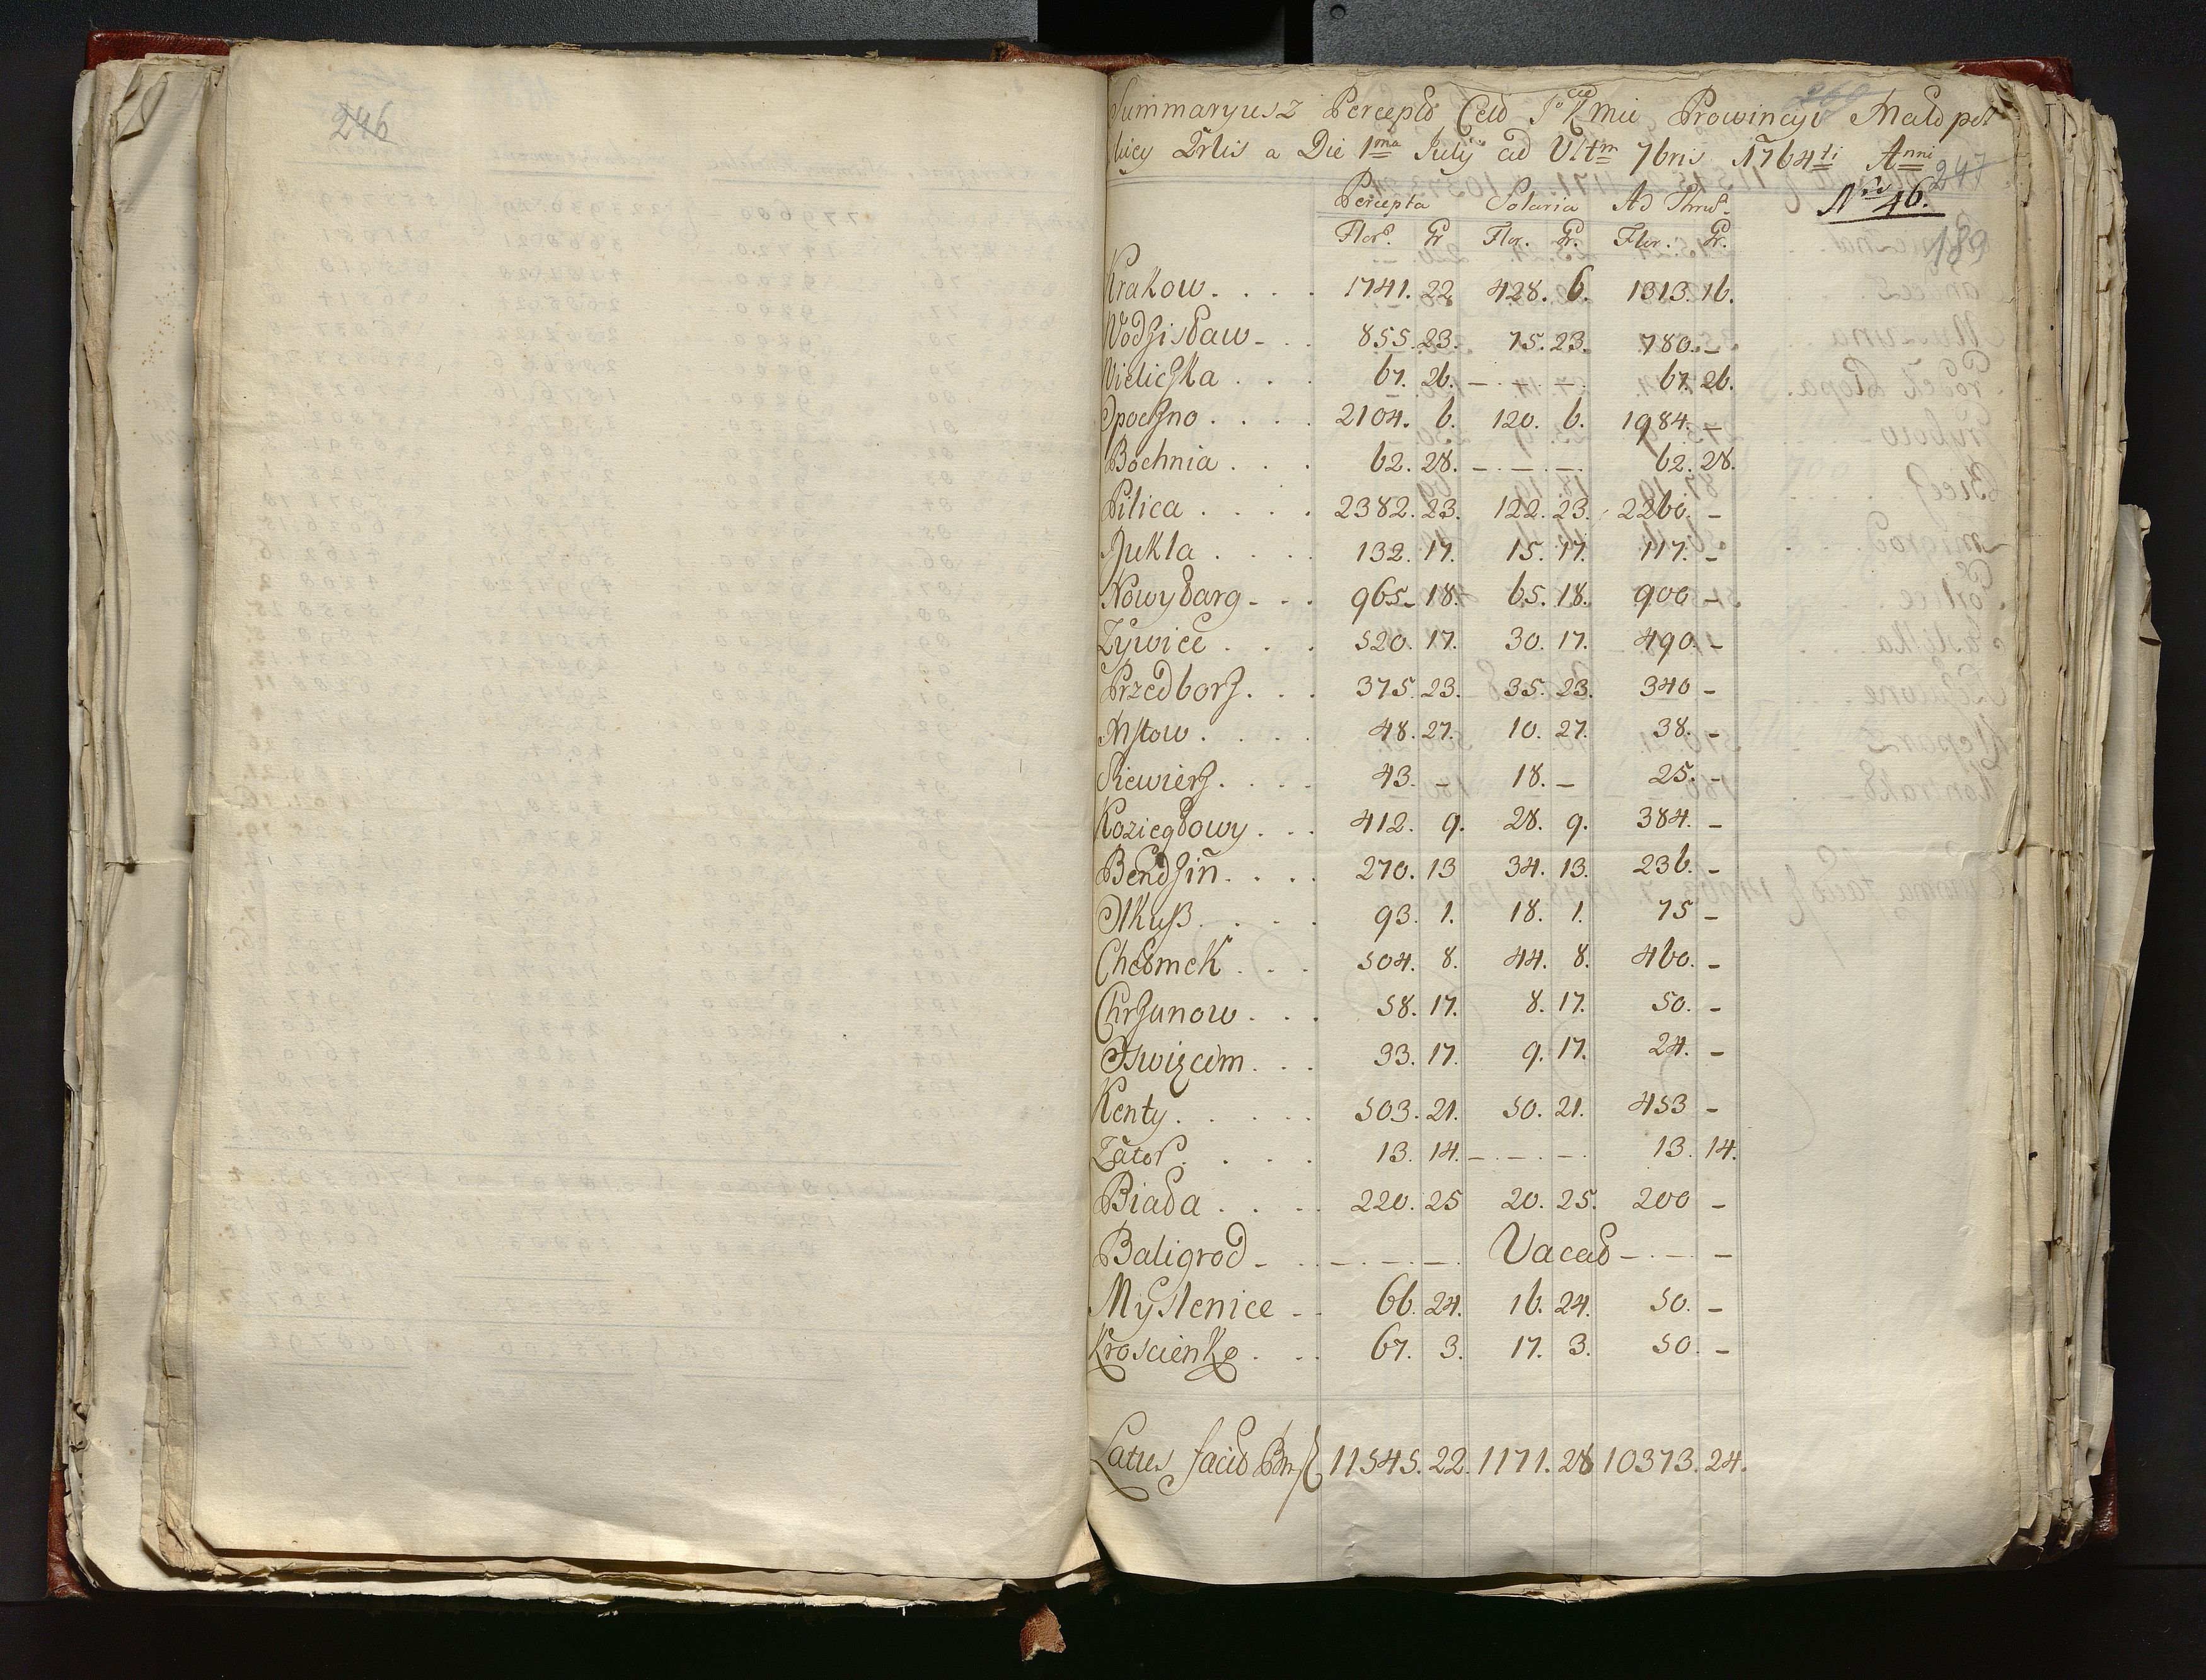 246
260
Summaryusz Percept Ceł Jo Kmci Prowincyi Małopol
skiey Qrlis a Die 1ma July ad Ultm 7bris 1764ti Anni
247
Nro 46.
189
Percepta Solaria Ad Thrum
Flor. Gr Flor. Gr. Flor. Gr.
Krakow . . . . 1741. 22 428. 6. 1313. 16.
Wodzisław - . . 855. 23. 75. 23. 780. -
Wieliczka . . . 67. 26. - . - . - . 67. 26.
Opoczno . . . . 2104. 6. 120. 6. 1984. -
Bochnia . . . 62. 28. - . - . - . 62. 28.
Pilica . . . . 2382. 23. 122. 23. 2260. -
Dukla . . . . 132. 17. 15. 17. 117. -
Nowytarg - . . 965. 18. 65. 18. 900 -
Zywiec . . . 520. 17. 30. 17. 490. -
Przedborz . . . 375. 23. 35. 23. 340 -
Mstow . . . . 48. 27. 10. 27. 38. -
Siewierz . . . . 43. - 18. - 25. -
Koziegłowy . . . 412. 9. 28. 9. 384. -
Bendzin . . . . 270. 13 34. 13. 236. -
Olkusz . . . . 93. 1. 18. 1. 75 -
Chełmek . . . 504. 8. 44. 8. 460. -
Chrzanow . . . 58. 17. 8. 17. 50. -
Oswięcim . . . 33. 17. 9. 17. 24. -
Kenty . . . . . 503. 21. 50. 21. 453 -
Zator . . . . 13. 14. - . - . - . 13. 14.
Biała . . . . 220. 25 20. 25. 200 -
Baligrod - . . - . - . - . Vacat - . - . -
Myslenice - . . 66. 24. 16. 24. 50. -
Kroscienko . . . 67. 3. 17. 3. 50. -
Latus facit 11545. 22. 1171. 28 10373. 24.